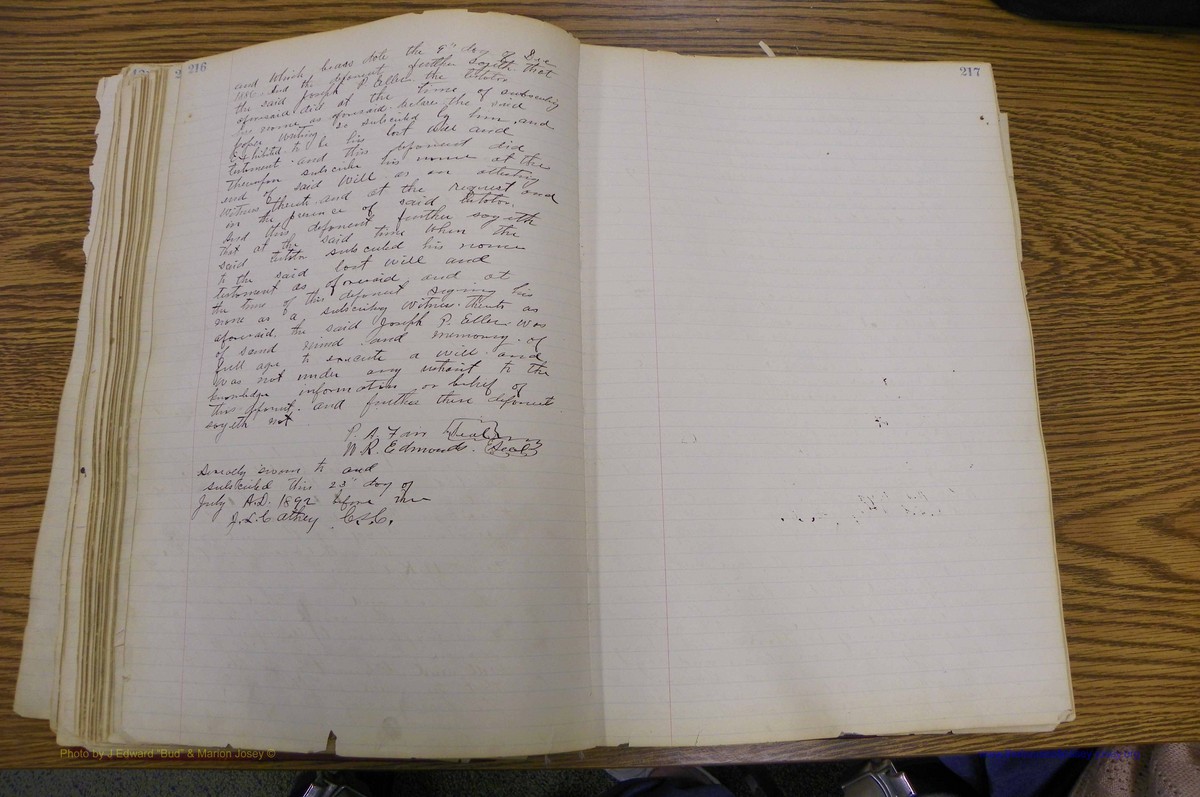 216
and which bears date the 9" day of Dec
And the deponent further sayeth that
the said Joseph P. Eller the testator
aforesaid did at the time of subscribing
his name as aforesaid declare the said
paper writing so subscribed by him, and
Exhibited to be his last will and
testament and this deponent did
thereupon subscribe his name at the
end of said Will as an attesting
witness thereto and at the request and
in the presence of said testator.
And this deponent further sayeth
that at the said time when the
said testator subscribed his name
to the said last will and
testament as aforesaid, and at
the time of this deponent signing his
name as a subscribing witness thereto as
aforesaid, the said Joseph P. Eller was
of sound mind and memory, of
full age to execute a will and
was not under any restraint to the
knowledge information or belief of
this deponent and further these deponent
sayeth not
P. A. (Seal)
W. R. Edmonds. (Seal)
Severally sworn to and
subscribed this 23" day of
July A.D. 1892 before me
J. L. Cathey C.S.C.
217
Photo by J Edward "Bud" & Marion Josey ©